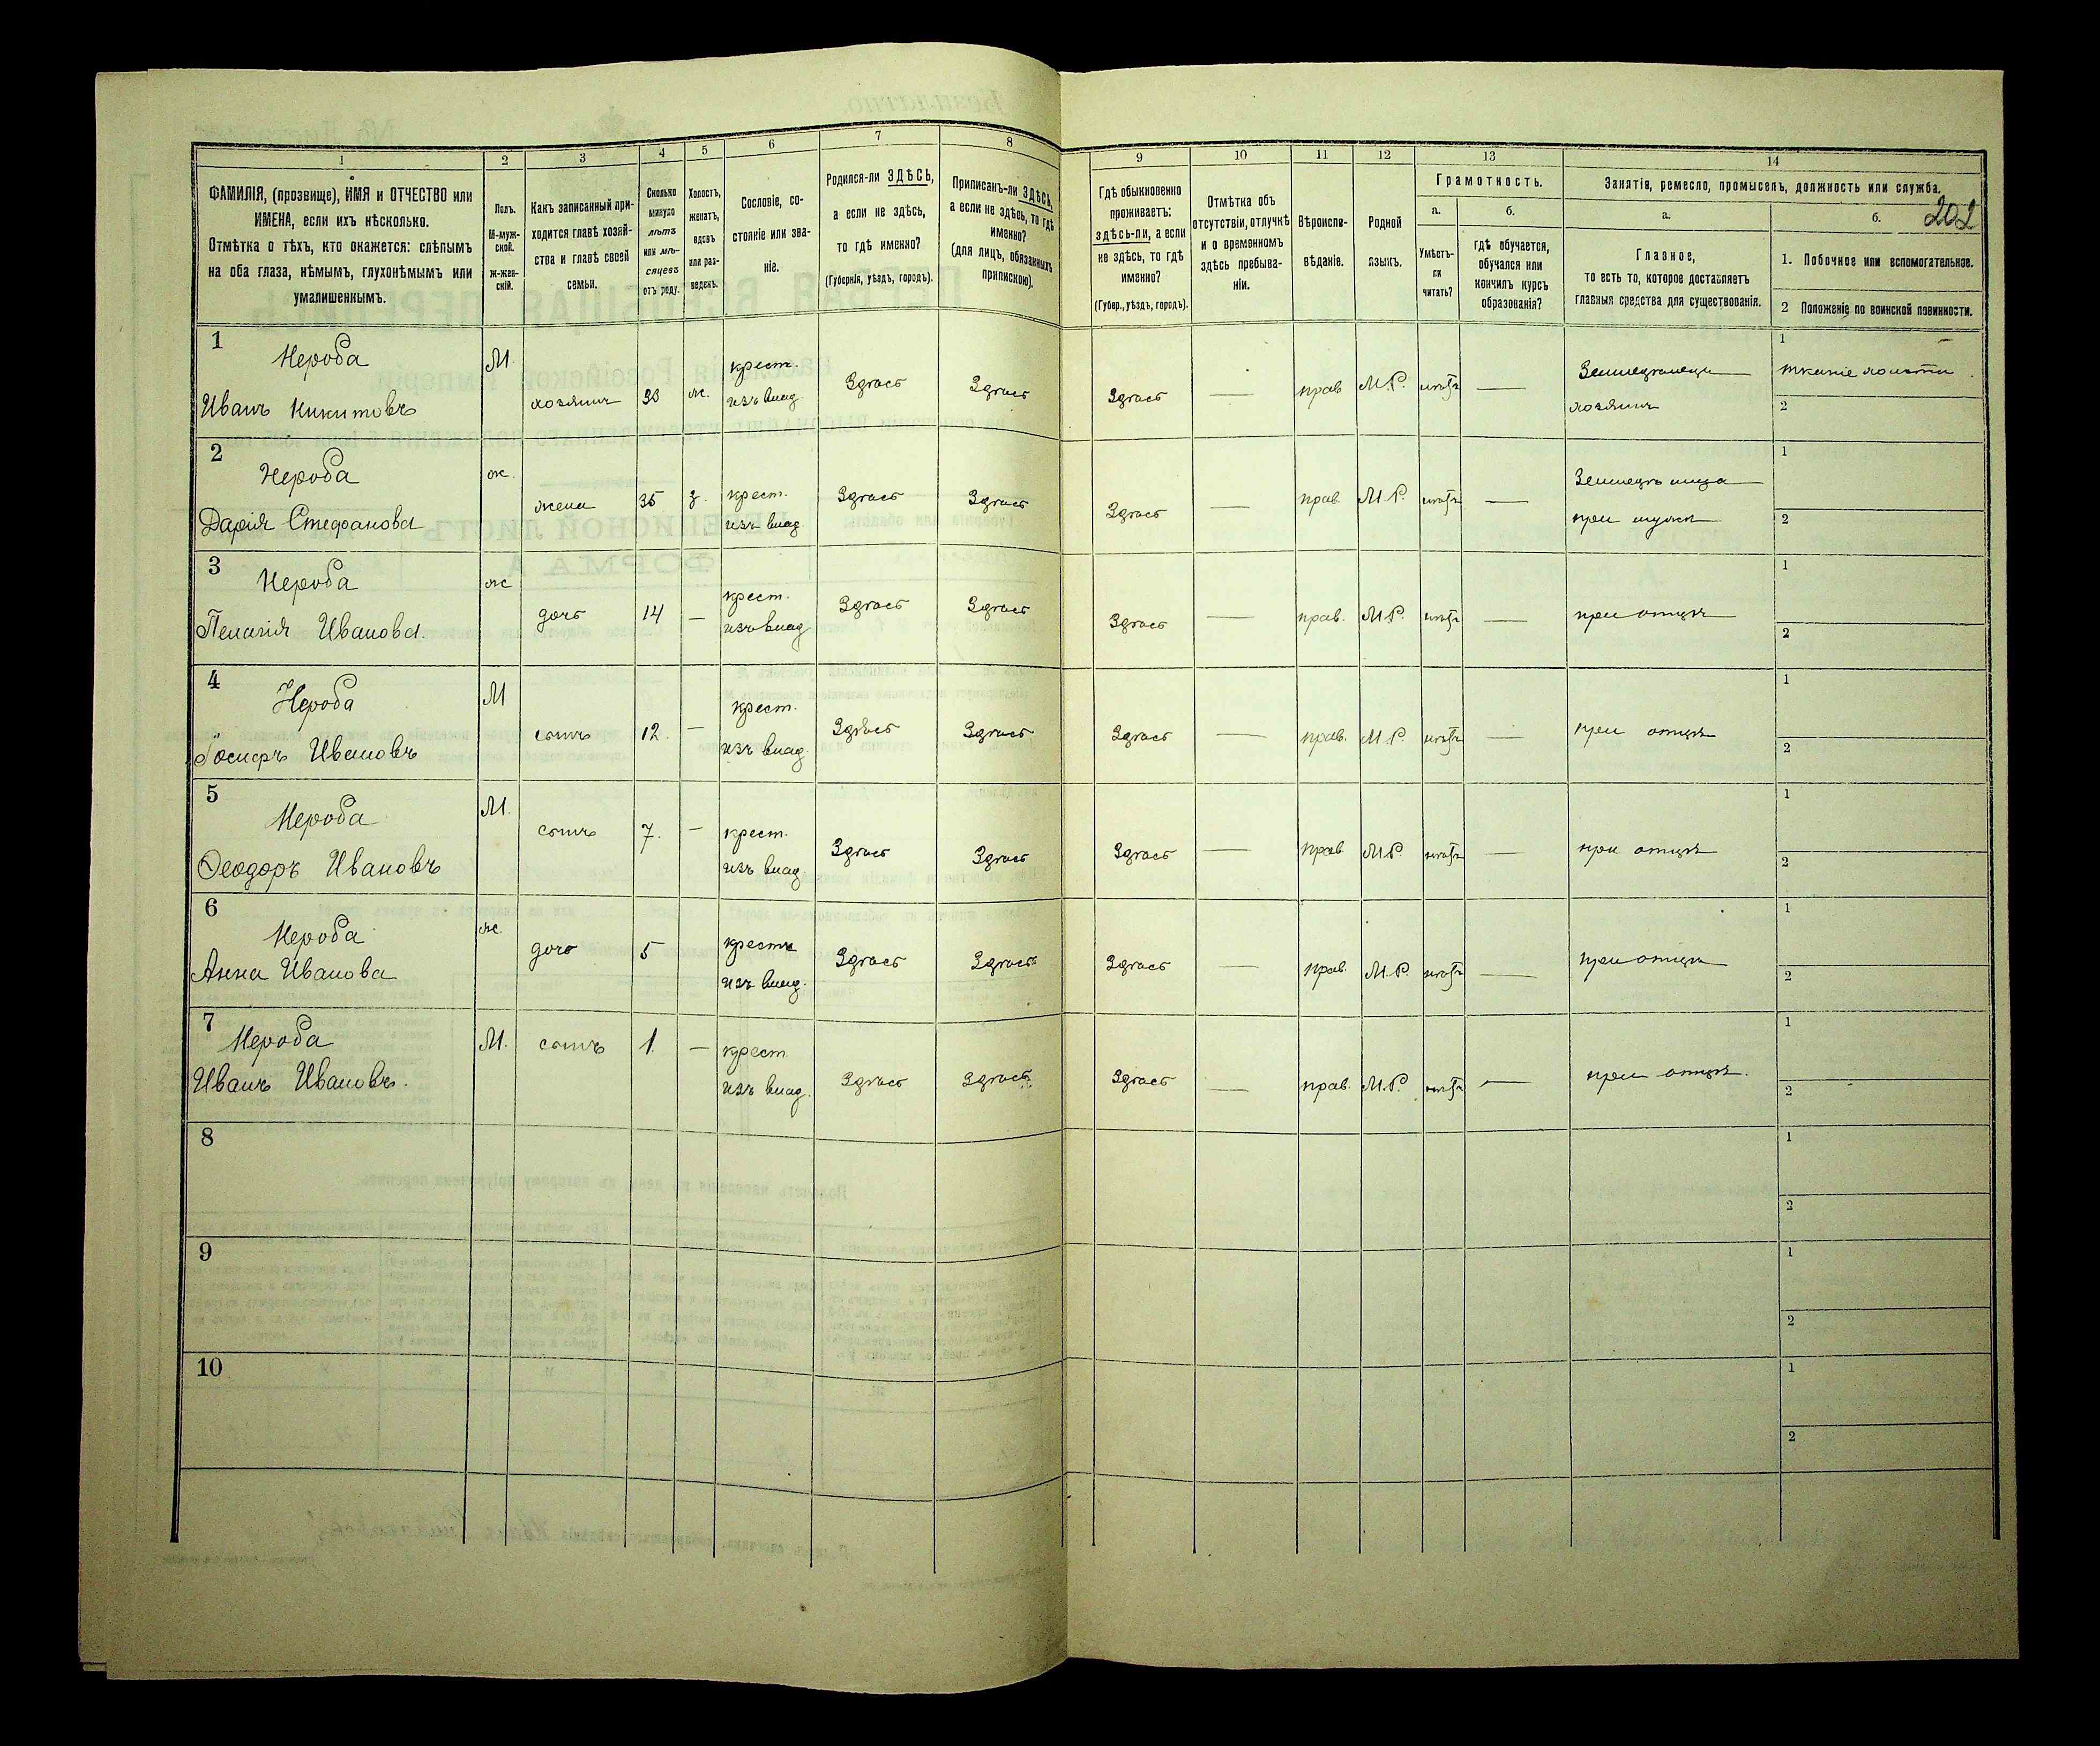 202
1 2 3 4 5 6 7 8 9 10 11 12 13 14
ФАМИЛІЯ, (прозвище), ИМЯ и ОТЧЕСТВО или
ИМЕНА, если ихъ нѣсколько.
Отмѣтка о тѣхъ, кто окажется: слѣпымъ
на оба глаза, нѣмымъ, глухонѣмымъ или
умалишеннымъ.
Полъ.
М-муж-
ской.
ж-жен-
скій.
Какъ записанный при-
ходится главѣ хозяй-
ства и главѣ своей
семьи.
Сколько
минуло
лѣтъ
или мѣ-
сяцевъ
отъ роду.
Холостъ,
женатъ,
вдовъ
или раз-
веденъ.
Сословіе, со-
стояніе или зва-
ніе.
Родился-ли ЗДѢСЬ,
а если не здѣсь,
то гдѣ именно?
(Губернія, уѣздъ, городъ).
Приписанъ-ли ЗДѢСЬ,
а если не здѣсь, то гдѣ
именно?
(для лицъ, обязанныхъ
припискою).
Гдѣ обыкновенно
проживаетъ:
здѣсь-ли, а если
не здѣсь, то гдѣ
именно?
(Губер., уѣздъ, городъ).
Отмѣтка объ
отсутствіи, отлучкѣ
и о временномъ
здѣсь пребыва-
ніи.
Вѣроиспо-
вѣданіе.
Родной
языкъ.
Грамотность.
а.
Умѣетъ-
ли
читать?
б.
гдѣ обучается,
обучался или
кончилъ курсъ
образованія?
Занятія, ремесло, промыселъ, должность или служба.
а.
Главное,
то есть то, которое доставляетъ
главныя средства для существованія.
б.
1. Побочное или вспомогательное.
2 Положеніе по воинской повинности.
1
Нероба М. крест. Земледѣлецъ 1 тканіе холста
Иванъ Никитовъ хозяинъ ж. изъ влад. Здѣсь Здѣсь Здѣсь — прав М.Р. нѣтъ — хозяинъ 2
2
Нероба ж. крест. 1
Дарія Стефанова жена 35 з. изъ влад. Здѣсь Здѣсь Здѣсь — прав М.Р. нѣтъ — при мужѣ 2
3
Нероба ж крест. 1
Пелагія Иванова. дочь 14 — изъ влад Здѣсь Здѣсь Здѣсь — прав. М.Р. нѣтъ — при отцѣ 2
4
Нероба М крест. 1
Іосифъ Ивановъ сынъ 12. — изъ влад. Здѣсь Здѣсь Здѣсь — прав. М.Р. нѣтъ — при отцѣ 2
5
Нероба М. крест. 1
Ѳеодоръ Ивановъ сынъ 7. — изъ влад Здѣсь Здѣсь Здѣсь — прав М.Р. нѣтъ — при отцѣ 2
6
Нероба ж. крестъ 1
Анна Иванова дочь 5 изъ влад. Здѣсь Здѣсь Здѣсь — прав. М.Р. нѣтъ — при отцѣ 2
7
Нероба М. сынъ 1. — крест 1
Иванъ Ивановъ. изъ влад. Здѣсь Здѣсь Здѣсь — прав. М.Р. нѣтъ — при отцѣ. 2
8 1
2
9 1
2
10 1
2